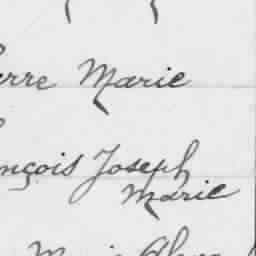 erre Marie
nçois Joseph
Marie